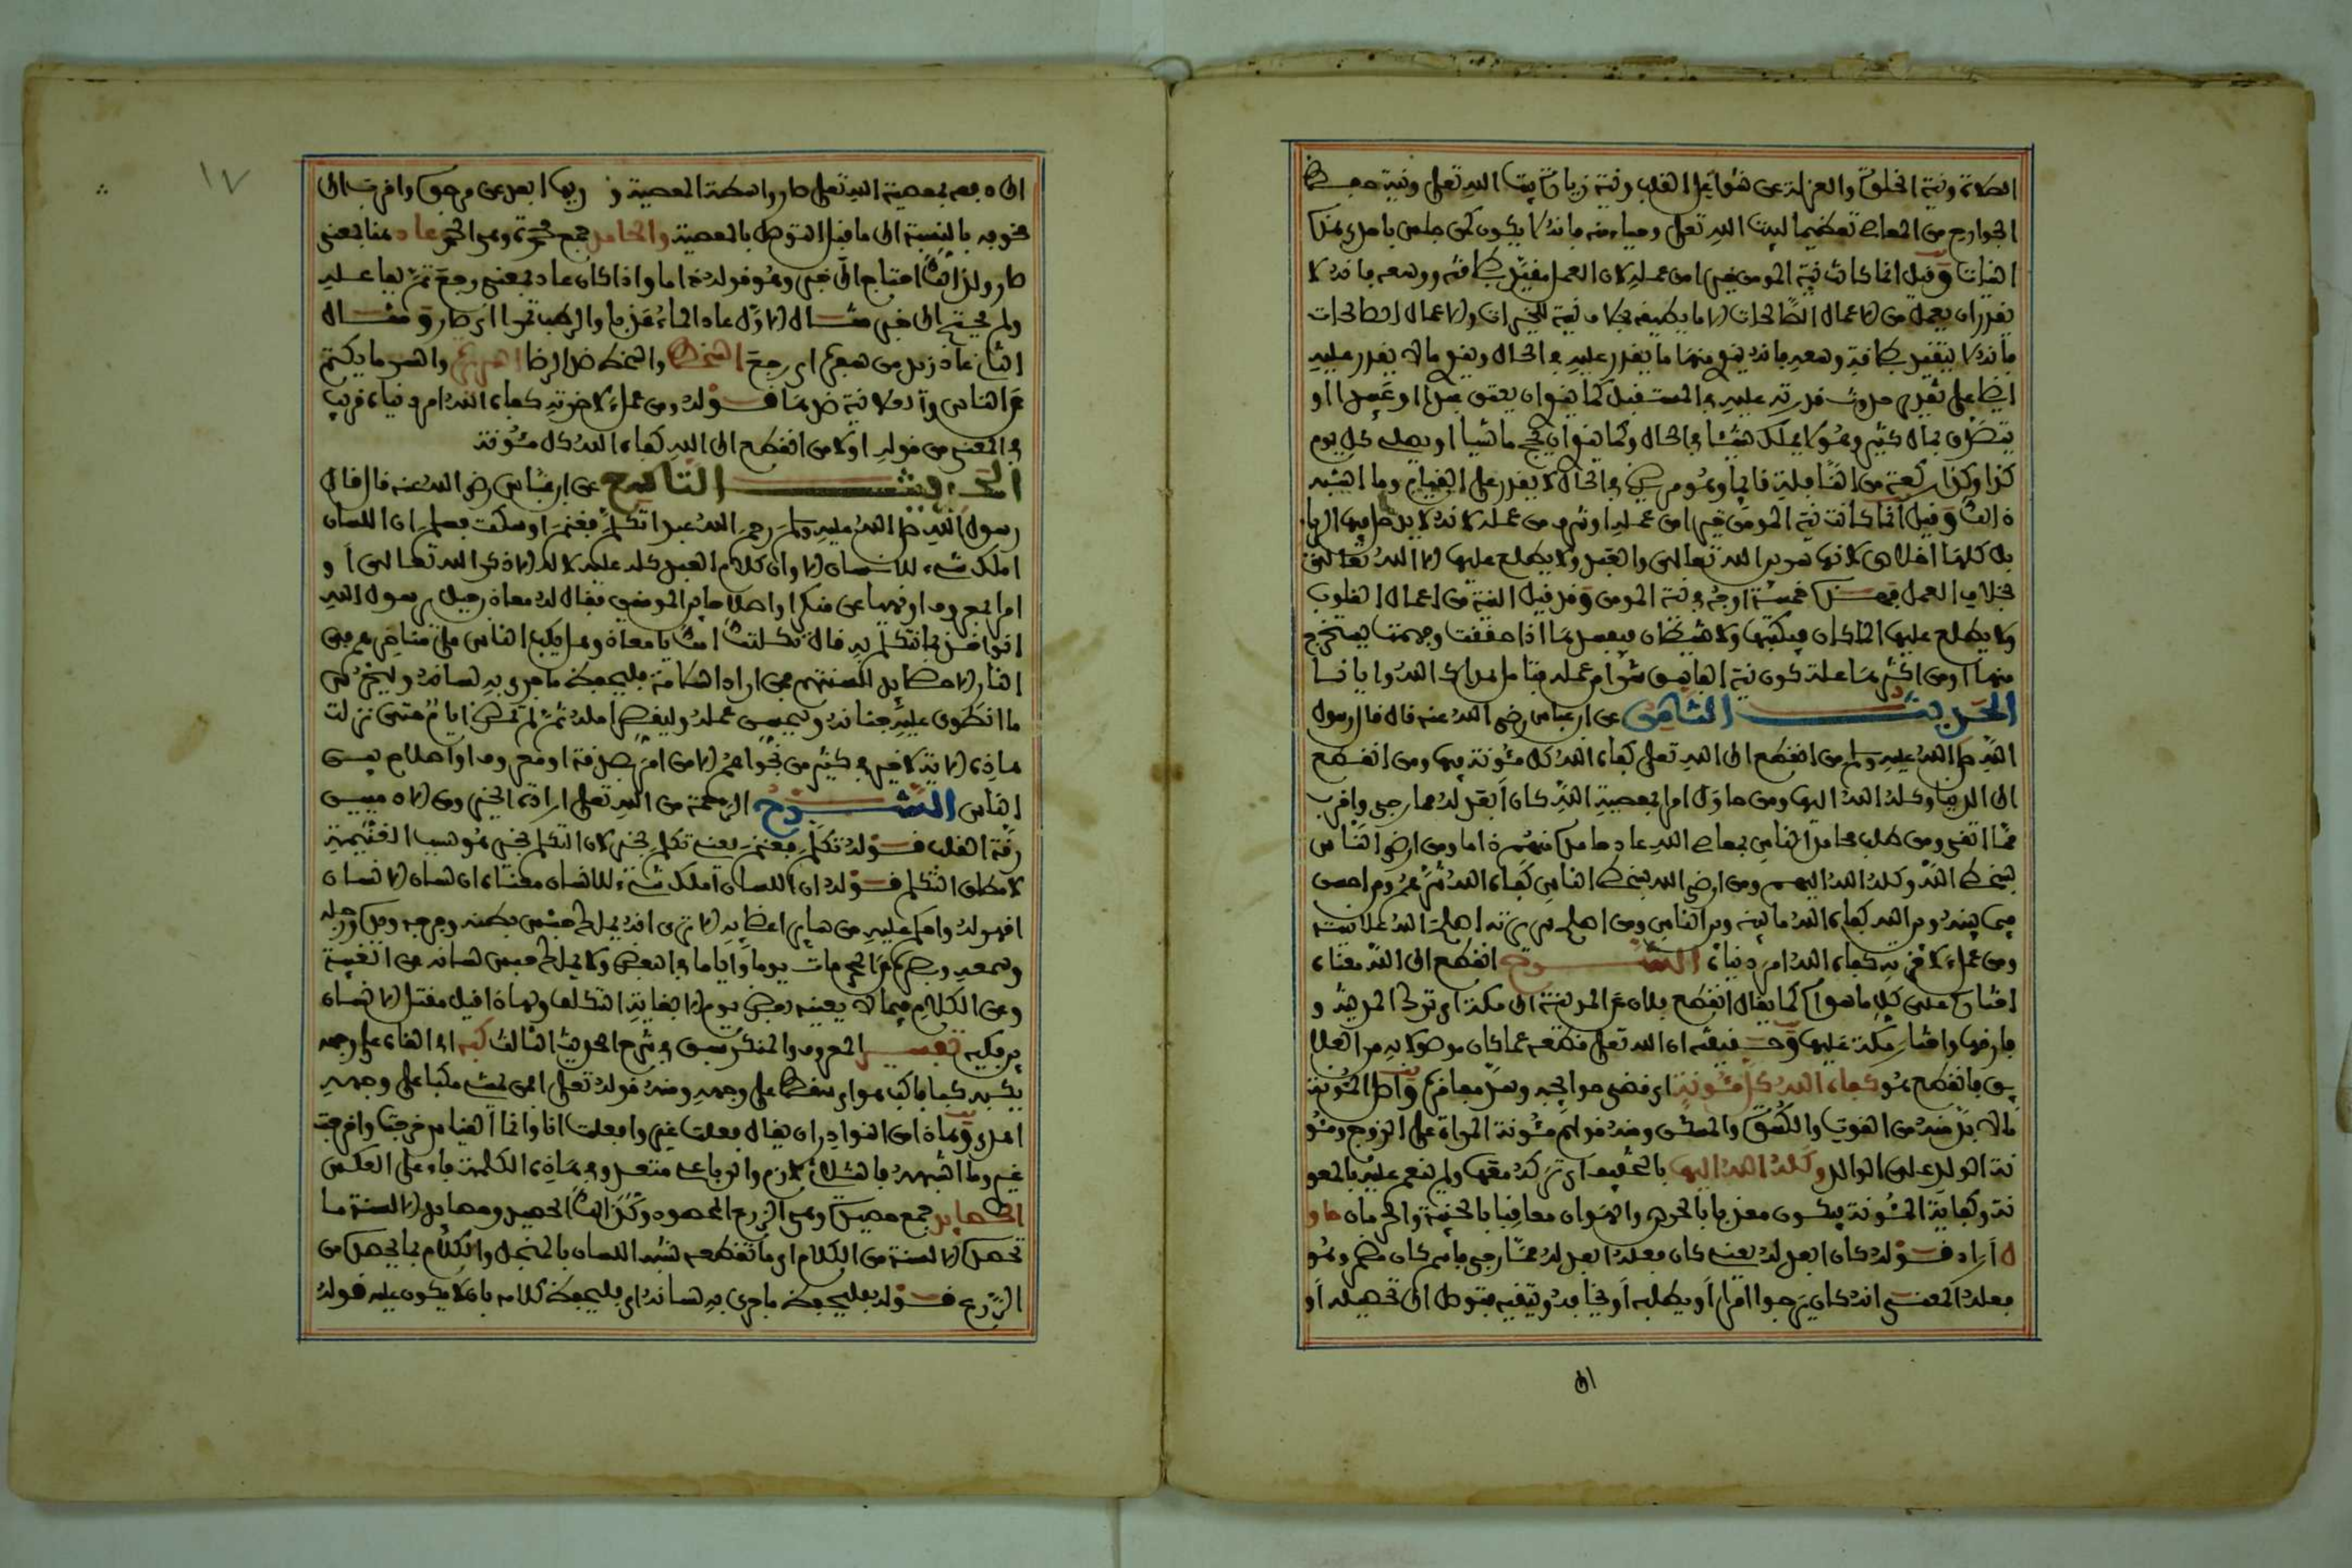 الصلاة ونية الخلوة والعزلة عن شواغل القلب ونية زيارة بيت الله تعلى ونية حفظ
الجوارح من المعاصي تعظيما لبيت الله تعلى وحياء منه فانه لا يكون كمن جلس
النيات وقيل انما كانت نية المومن خير من عمله لان العمل مقيد بطاقته ووسعه فانه لا
يقدر ان يعمل من الاعمال الصالحات الا ما يطيقه بخلاف نية الخيرات والاعمال الصالحات
فانه لا يتقيد بطاقته ووسعه فانه ينوي منها ما يقدر عليه في الحال وينوي ما لا يقدر عليه
ايضا على تقدير حدوث قدرته عليه في المستقبل كما ينوي ان يعتق عبدا او عبيدا او
يتصدق بمال كثير وهو لا يملك شيئا في الحال وكما ينوي ان يحج ماشيا او يصلي كل يوم
كذا وكذا ركعة من النافلة قائما وهو مريض في الحال لا يقدر على القيام وما اشبه
ذالك وقيل انما كانت نية المومن خير من عمله لانه لا يدخل فيها الريا
بل كلها اخلاص لانها سر بين الله تعالى والعبد ولا يطلع عليها الا الله تعالى
بخلاف العمل فهذه خمسة اوجه في نية المومن وقد قيل النية من اعمال القلوب
ولا يطلع عليها الملكان فيكتبها ولا شيطان فيفسدها اذا حققت وجمعت يستخرج
منها ومن اكثرها علة كون نية الفاسق شر من عمله فتامل هداك الله وايانا
الحديث الثامن عن ابن عباس رضي الله عنه قال قال رسول
الله صلى الله عليه وسلم من انقطع الى الله تعلى كفاه الله كل مئونة فيها ومن انقطع
الى الدنيا وكله الله اليها ومن حاول امرا بمعصية الله كان ابعد له مما رجى واقرب
مما اتقى ومن طلب محامد الناس بمعاصي الله عاد حامده منهم ذاما ومن ارضى الناس
بسخط الله وكله الله اليهم ومن ارضى الله بسخط الناس كفاه الله شرهم ومن احسن
فيما بينه وبين الله كفاه الله ما بينه وبين الناس ومن اصلح سريرته اصلح الله علانيته
ومن عمل لاخرته كفاه الله امر دنياه الشرح انقطع الى الله معناه
اختاره على كل ما سواه كما يقال انقطع فلان عن المدينة الى مكة اي ترك المدينة و
فارقها واختار مكة عليها وحقيقته ان الله تعلى قطعه عما كان موصولا به من العلا
يق فانقطع هو كفاه الله كل مئونة اي قضى حوائجه وسد مفاقره واصل المئونة
مالا بد منه من القوت والكسوة والمسكن ومنه قولهم مئونة المراة على الزوج ومئو
نة الولد على الوالد وكله الله اليها بالتخفيف اي تركه معها ولم ينعم عليه بالمعو
نة وكفاية المئونة فيكون معذبا بالحرص والهوان معاقبا بالخيبة والحرمان حاو
ل اراد قوله كان ابعد له يعني كان فعله ابعد له مما رجى فاسم كان مضمر وهو
فعله المعنى انه كان يرجو امرا او يطلبه او يخافه ويتقيه فتوصل الى تحصيله او
الى
١٧
الى دفعه بمعصية الله تعلى صار واسطة المعصية في ربها ابعد عن مرجوه واقرب الى
مخوفه بالنسبة الى ما قبل التوصل بالمعصية والمحامد جمع محمدة وهي الحمد عاد هنا بمعنى
صار ولذالك احتاج الى خبر وهو قوله ذاما واذا كان عاد بمعنى رجع تم بفاعله
ولم يحتج الى خبر مثال الاول عاد الماء عذبا والرطب تمرا اي صار ومثال
الثاني عاد زيد من سفره اي رجع السخط والسخط ضد الرضا السريرة والسر ما يكتم
عن الناس والعلانية ضدها قوله ومن عمل لاخرته كفاه الله امر دنياه قريب
في المعنى من قوله اولا من انقطع الى الله كفاه الله كل مئونة
الحديث التاسع عن ابن عباس رضي الله عنه قال قال
رسول الله صلى الله عليه وسلم رحم الله عبدا تكلم فغنم او سكت فسلم ان اللسان
املك شيء للانسان الا وان كلام العبد كله عليه لا له الا ذكر الله تعالى او
امرا بمعروف او نهيا عن منكر او اصلاحا بين المومنين فقال له معاذ بن جبل يا رسول الله
انواخذ بما نتكلم به قال ثكلتك امك يا معاذ وهل يكب الناس على مناخرهم في
النار الا حصايد السنتهم فمن اراد السلامة فليحفظ ما جرى به لسانه وليحرس
ما انطوى عليه جنانه وليحسن عمله وليقصر امله ثم لم تمض ايام حتى نزلت
هاذه الاية لا خير في كثير من نجواهم الا من امر بصدقة او معروف او اصلاح بين
الناس الشرح الرحمة من الله تعلى ارادة الخير ومن الادميين
رقة القلب قوله تكلم فغنم يعني تكلم بخير لان التكلم بخير هو سبب الغنيمة
لا مطلق التكلم قوله ان اللسان املك شيء للانسان معناه ان لسان الانسان
اقهر له واحكم عليه من ساير اعضايه الا ترى انه يملك حبس بطنه وفرجه ويده ورجله
وسمعه وبصره عن المحرمات يوما واياما في البعض ولا يملك حبس لسانه عن الغيبة
وعن الكلام فيما لا يعنيه بعض يوم الا بغاية التكلف ولهاذا قيل مقتل الانسان
بين فكيه تفسير المعروف والمنكر سبق في شرح الحديث الثالث كبه اي القاه على وجهه
يكبه كبا فاكب هو اي سقط على وجهه ومنه قوله تعلى افمن يمشي مكبا على وجهه
اهدى وهاذا من النوادر ان يقال فعلت غيري وافعلت انا وانما القياس خرجت واخرجت
غيري وما اشبهه فالثلاثي لازم والرباعي متعد وفي هاذه الكلمة جاء على العكس
الحصايد جمع حصيدة وهي الزرع المحصود وكذالك الحصيد وحصايد الالسنة ما
تحصده الالسنة من الكلام اي ما تقطعه شبه اللسان بالمنجل والكلام بما يحصد من
الزرع قوله فليحفظ ما جرى به لسانه اي فليحفظ كلامه بان لا يكون عليه قوله